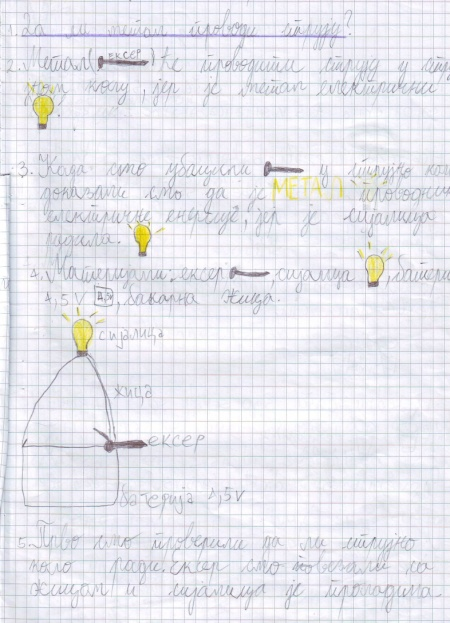 1. Да ли метал проводи струју?
2. Метал (ексер) ће проводити струју у
коју, јер је метал електрични
3. Када смо убацили у струјно
доказали смо да је МЕТАЛ проводник
електричне енергије, јер је сијалица
радила.
4. Материјали: ексер, сијалица,
4,5V 4,5V, бакарна жица.
сијалица
жица
ексер
батерија 4,5V
5. Прво смо проверили да ли струјно
коло ради. ексер смо повезали са
жицом и сијалица је прорадила